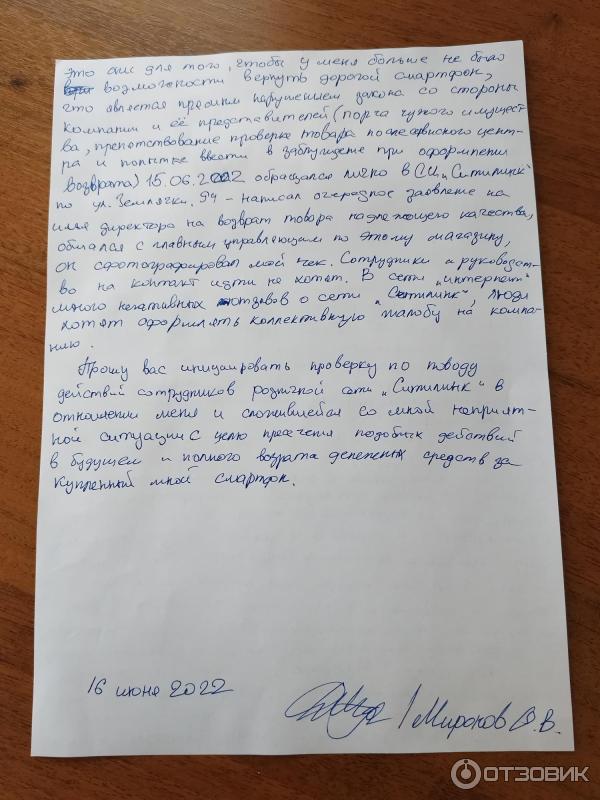 это они для того, чтобы у меня больше не было
возможности вернуть дорогой смартфон,
что является прямым нарушением закона со стороны
компании и её представителей (порча чужого имущест-
ва, препятствование проверке товара после сервисного цент-
ра и попытке ввести в заблуждение при оформлении
возврата) 15.06.2022 обращался лично в СЦ „Ситилинк"
по ул. Землячки, 94 - написал очередное заявление на
имя директора на возврат товара надлежащего качества,
общался с главным управляющим по этому магазину,
он сфотографировал мой чек. Сотрудники и руководст-
во на контакт идти не хотят. В сети „интернет"
много негативных отзывов о сети „Ситилинк", люди
хотят оформлять коллективную жалобу на компа-
нию.
Прошу вас инициировать проверку по поводу
действий сотрудников розничной сети „Ситилинк" в
отношении меня и сложившейся со мной неприят-
ной ситуации с целю пресечения подобных действий
в будущем и полного возрата денежных средств за
купленный мной смартфон.
16 июня 2022
/ Миронов В.В.
ОТЗОВИК